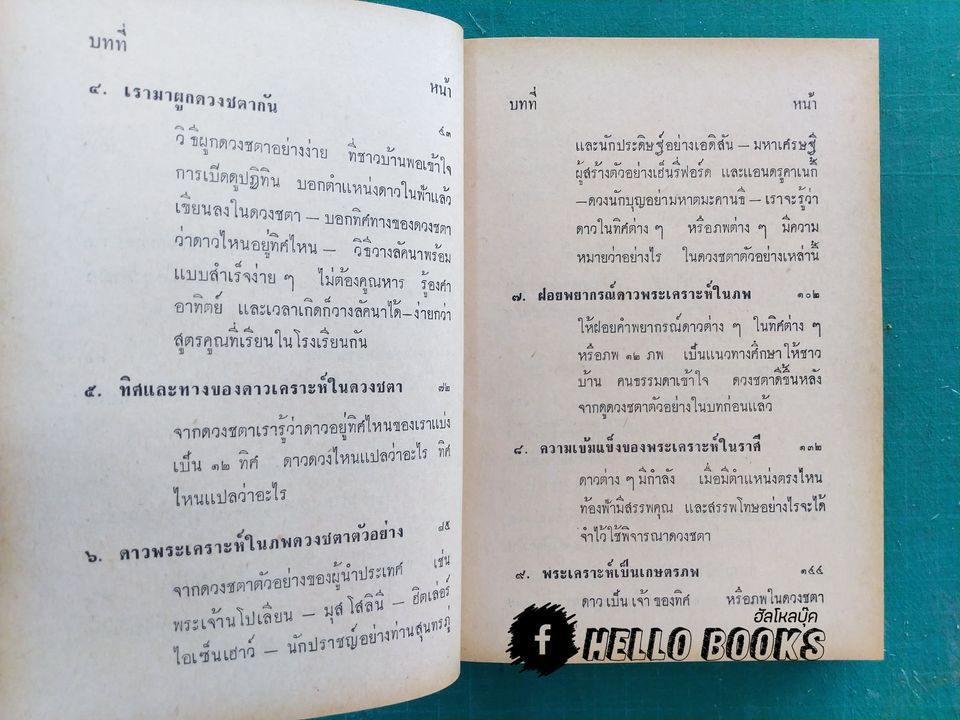 บทที่
หน้า
๔. เรามาผูกดวงชตากัน
๕๓
วิธีผูกดวงชตาอย่างง่าย ที่ชาวบ้านพอเข้าใจ
การเปิดดูปฏิทิน บอกตำแหน่งดาวในฟ้าแล้ว
เขียนลงในดวงชตา — บอกทิศทางของดวงชตา
ว่าดาวไหนอยู่ทิศไหน — วิธีวางลัคนาพร้อม
แบบสำเร็จง่าย ๆ ไม่ต้องคูณหาร รู้องศา
อาทิตย์ และเวลาเกิดก็วางลัคนาได้—ง่ายกว่า
สูตรคูณที่เรียนในโรงเรียนกัน
๕. ทิศและทางของดาวเคราะห์ในดวงชตา ๗๒
จากดวงชตาเรารู้ว่าดาวอยู่ทิศไหนของเราแบ่ง
เป็น ๑๒ ทิศ ดาวดวงไหนแปลว่าอะไร ทิศ
ไหนแปลว่าอะไร
๖. ดาวพระเคราะห์ในภพดวงชตาตัวอย่าง ๘๕
จากดวงชตาตัวอย่างของผู้นำประเทศ เช่น
พระเจ้านโปเลียน — มุสโสลินี — ฮิตเล่อร์
ไอเซ็นเฮาว์ — นักปราชญ์อย่างท่านสุนทรภู่
บทที่ หน้า
และนักประดิษฐ์อย่างเอดิสัน — มหาเศรษฐี
ผู้สร้างตัวอย่างเฮ็นรี่ฟอร์ด และแอนดรูคาเนกี้
—ดวงนักบุญอย่างมหาตมะคานธี — เราจะรู้ว่า
ดาวในทิศต่าง ๆ หรือภพต่าง ๆ มีความ
หมายว่าอย่างไร ในดวงชตาตัวอย่างเหล่านี้
๗. ฝอยพยากรณ์ดาวพระเคราะห์ในภพ ๑๐๒
ให้ฝอยคำพยากรณ์ดาวต่าง ๆ ในทิศต่าง ๆ
หรือภพ ๑๒ ภพ เป็นแนวทางศึกษาให้ชาว
บ้าน คนธรรมดาเข้าใจ ดวงชตาดีขึ้นหลัง
จากดูดวงชตาตัวอย่างในบทก่อนแล้ว
๘. ความเข้มแข็งของพระเคราะห์ในราศี ๑๓๒
ดาวต่าง ๆ มีกำลัง เมื่อมีตำแหน่งตรงไหน
ท้องฟ้ามีสรรพคุณ และสรรพโทษอย่างไรจะได้
จำไว้ใช้พิจารณาดวงชตา
๙. พระเคราะห์เป็นเกษตรภพ ๑๔๔
ดาวเป็นเจ้าของทิศ หรือภพในดวงชตา
ฮัลโหลบุ๊ค
f HELLO BOOKS